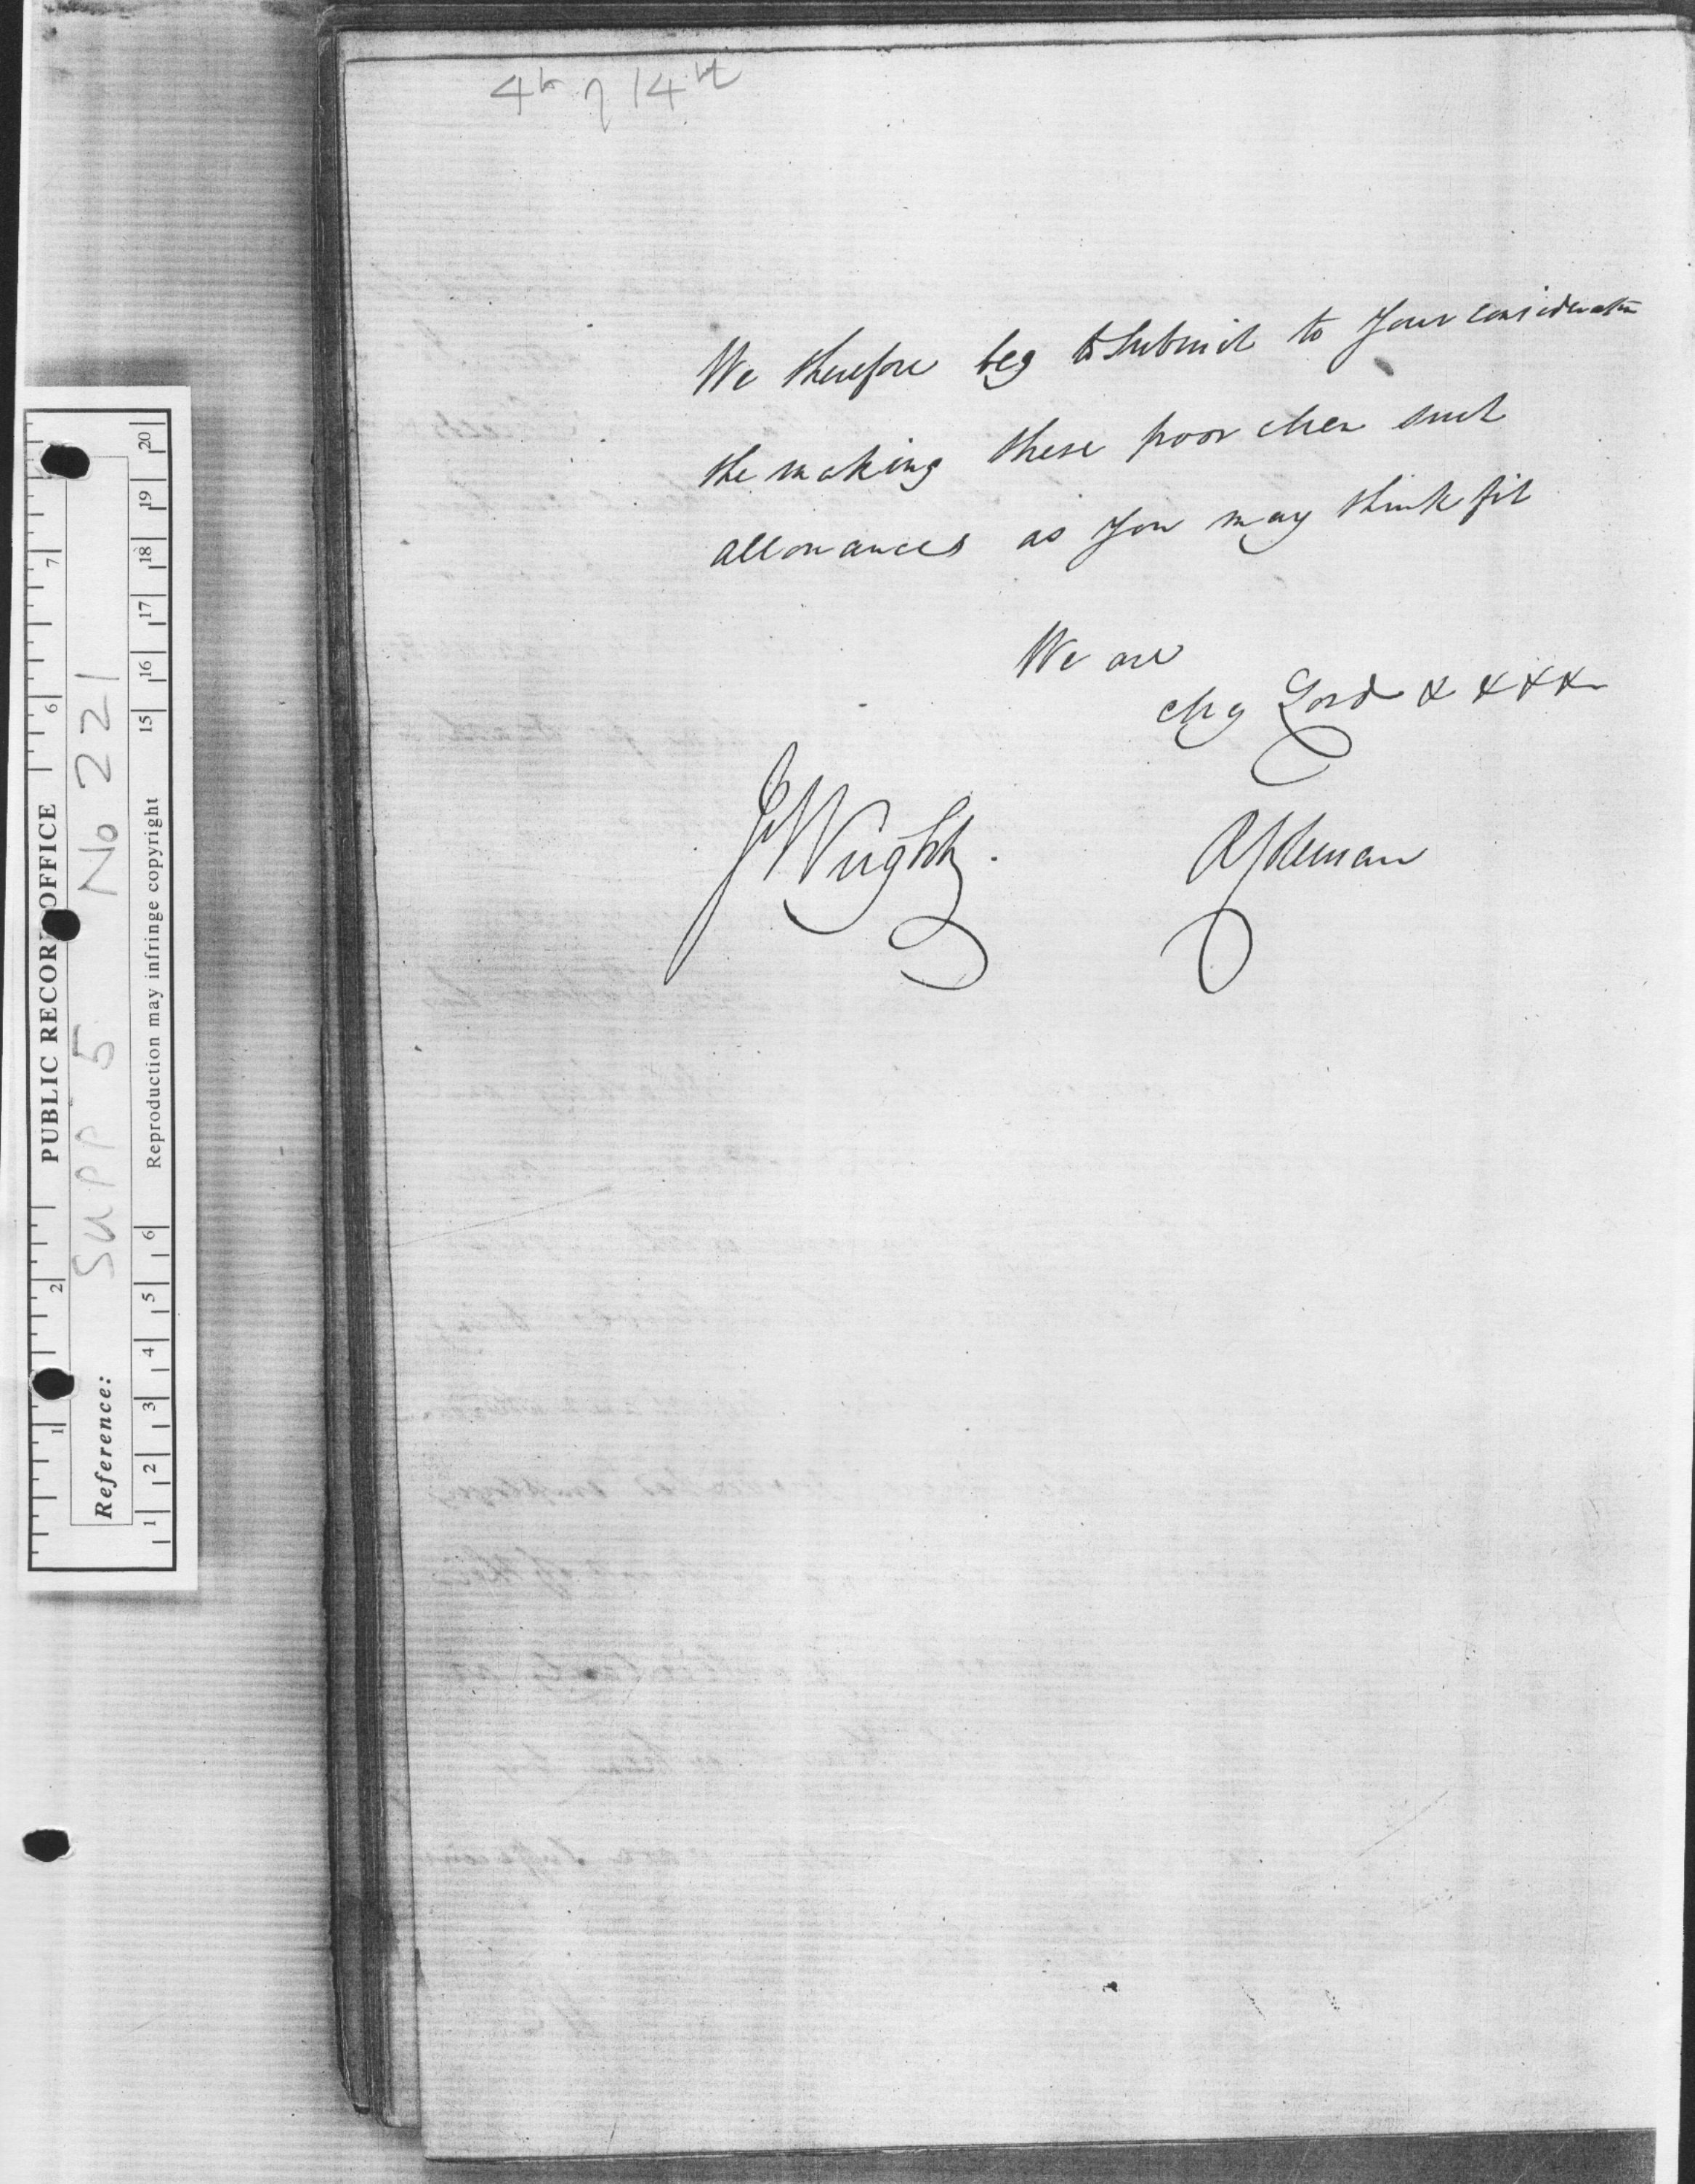 4th of 14th
We therefore beg to Submit to your consideration
the making these poor Men such
allowances as you may think fit
We are
My Lord & &&&
J Wright
R Coleman
PUBLIC RECORD OFFICE
Reference: SUPP 5 No 221
Reproduction may infringe copyright